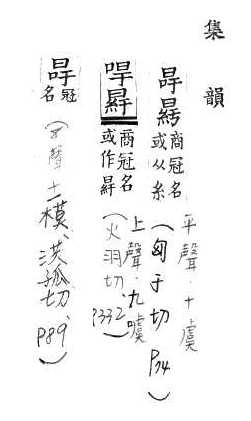 集韻
冔
商冠名
或从糸
平聲.十虞
(匈于切 P74)
商冠名
或作
上聲.九噳
(火羽切、P332)
冔
冠名
(平聲十一模、洪孤切、P89、)